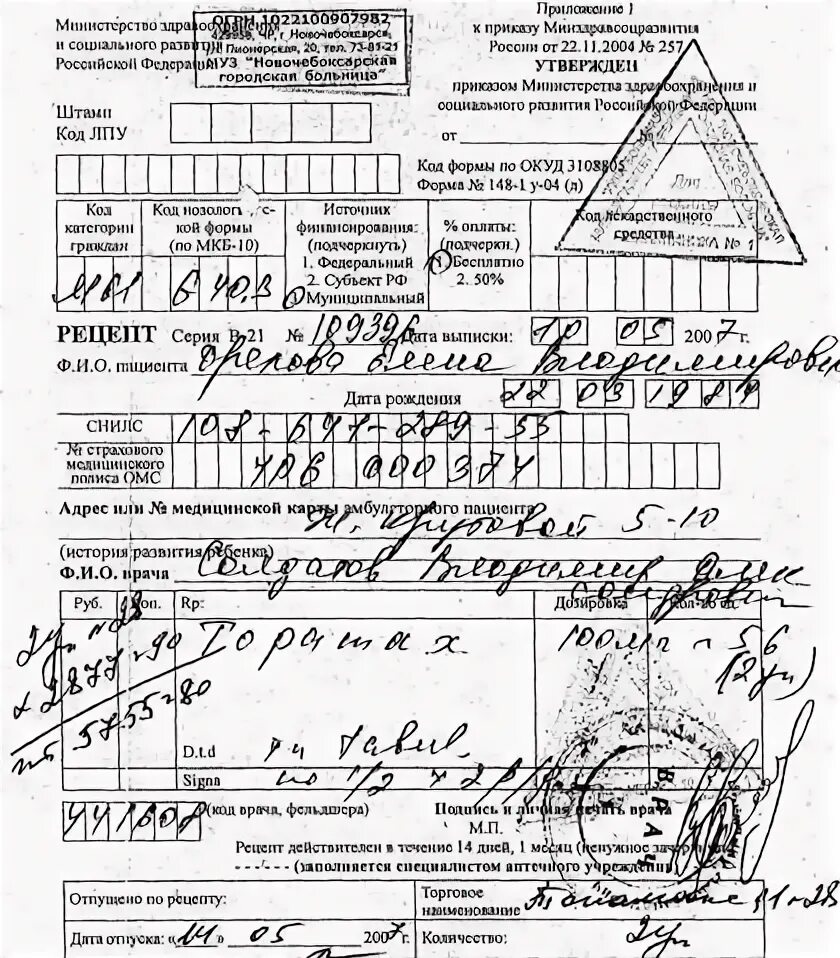 Министерство здравоохранения
и социального развития
Российской Федерации
ОГРН 1022100907982
429958, ЧР, г. Новочебоксарск,
Пионерская, 20, тел. 73-81-21
МУЗ "Новочебоксарская
городская больница"
Приложение 1
к приказу Минздравсоцразвития
России от 22.11.2004 № 257
УТВЕРЖДЕН
приказом Министерства здравоохранения и
социального развития Российской Федерации
от №
Штамп
Код ЛПУ
Код формы по ОКУД 3108805
Форма № 148-1 у-04 (л)
Для
№ 1
Код
категории
граждан
Код нозологической
кой формы
(по МКБ-10)
Источник
финансирования:
(подчеркнуть)
1. Федеральный
2. Субъект РФ
3 Муниципальный
% оплаты:
(подчеркн.)
1 Бесплатно
2. 50%
Код лекарственного
средства
G 40.3
РЕЦЕПТ Серия В-21 № 109396 Дата выписки: 10 05 2007 г.
Ф.И.О. пациента Елена Владимировн
Дата рождения 22 03 198
СНИЛС 108-647-289-55
№ страхового
медицинского
полиса ОМС
706 000377
Адрес или № медицинской карты амбулаторного пациента
5-10
(история развития ребенка)
Ф.И.О. врача Солдатов Владимир
Руб. Коп. Rp: Дозировка Кол-во ед.
2уп №28
х 2877=90
5755=80
100мг №56
(2уп)
D.t.d
Signa по 1/2 т 2
441608 (код врача, фельдшера)
Подпись и личная печать врача
М.П.
ВРАЧ
Рецепт действителен в течение 14 дней, 1 месяц (ненужное зачеркнуть)
(заполняется специалистом аптечного учреждения)
Отпущено по рецепту:
Торговое
наименование
№28
Дата отпуска: «11» 05 2007 г.
Количество: 2уп